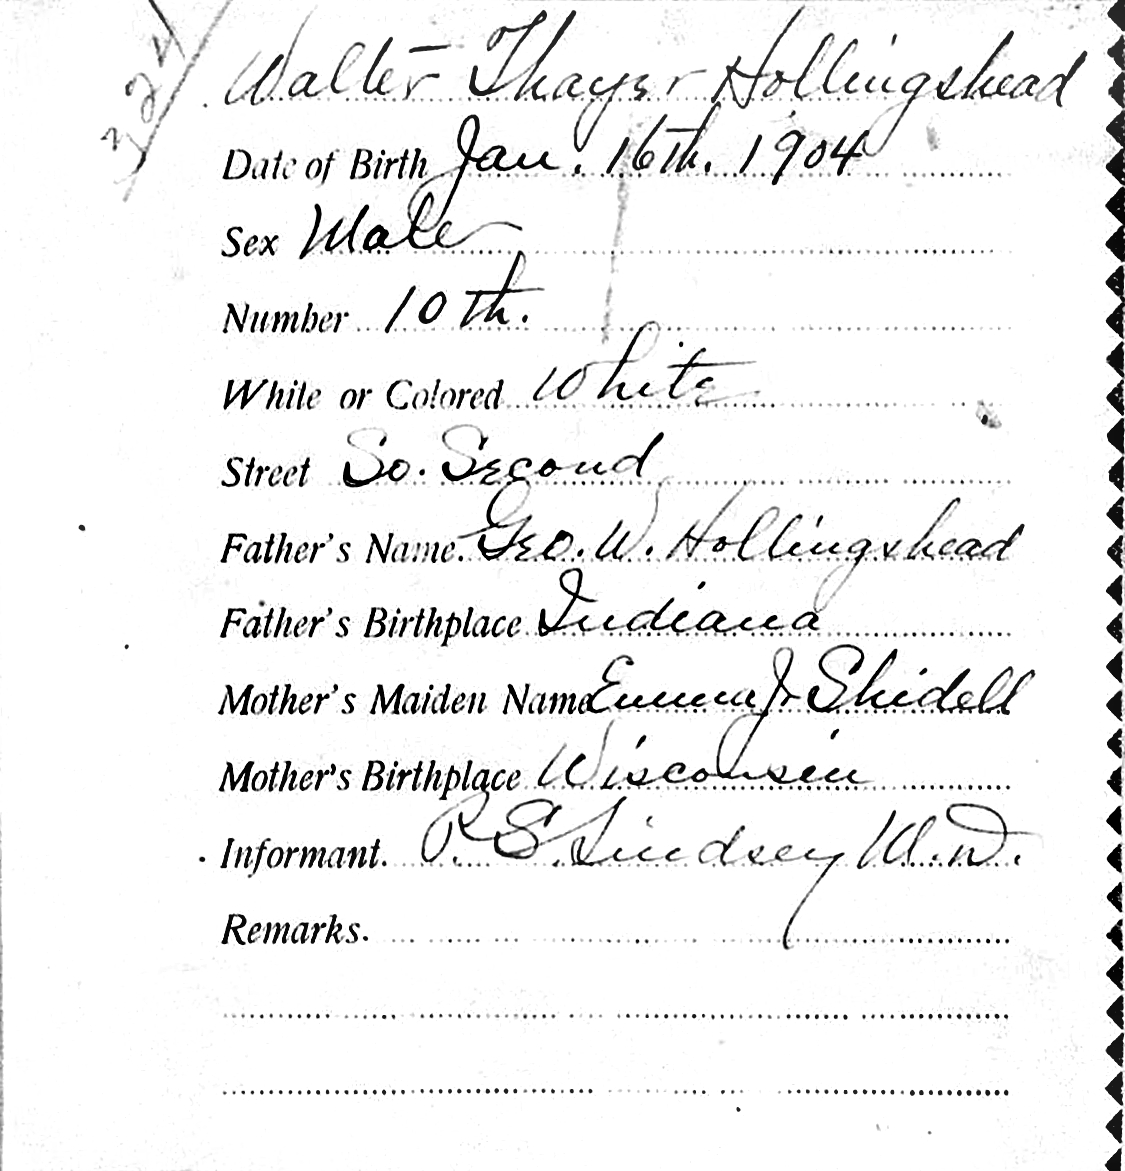 324
Walter Thayer Hollingshead
Date of Birth Jan. 16th. 1904
Sex Male
Number 10th.
White or Colored White
Street So. Second
Father's Name. Geo. W. Hollingshead
Father's Birthplace Indiana
Mother's Maiden Name Emma J. Shidell
Mother's Birthplace Wisconsin
Informant. P. S. Lindsey M.D.
Remarks.